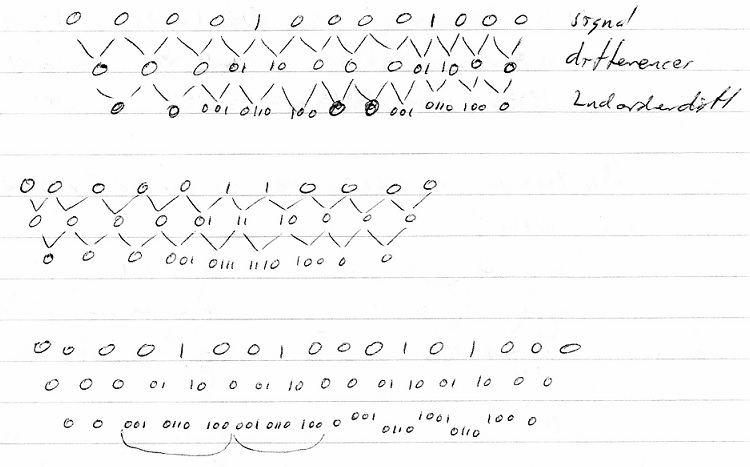 0 0 0 0 1 0 0 0 0 1 0 0 0 signal
0 0 0 01 10 0 0 0 01 10 0 0 differences
0 0 001 0110 100 0 0 001 0110 100 0 2nd order diff
0 0 0 0 0 1 1 0 0 0 0
0 0 0 0 01 11 10 0 0 0
0 0 0 001 0111 1110 100 0 0
0 0 0 0 1 0 0 1 0 0 0 1 0 1 0 0 0
0 0 0 01 10 0 01 10 0 0 01 10 01 10 0 0
0 0 001 0110 100 001 0110 100 0 001 0110 1001 0110 100 0